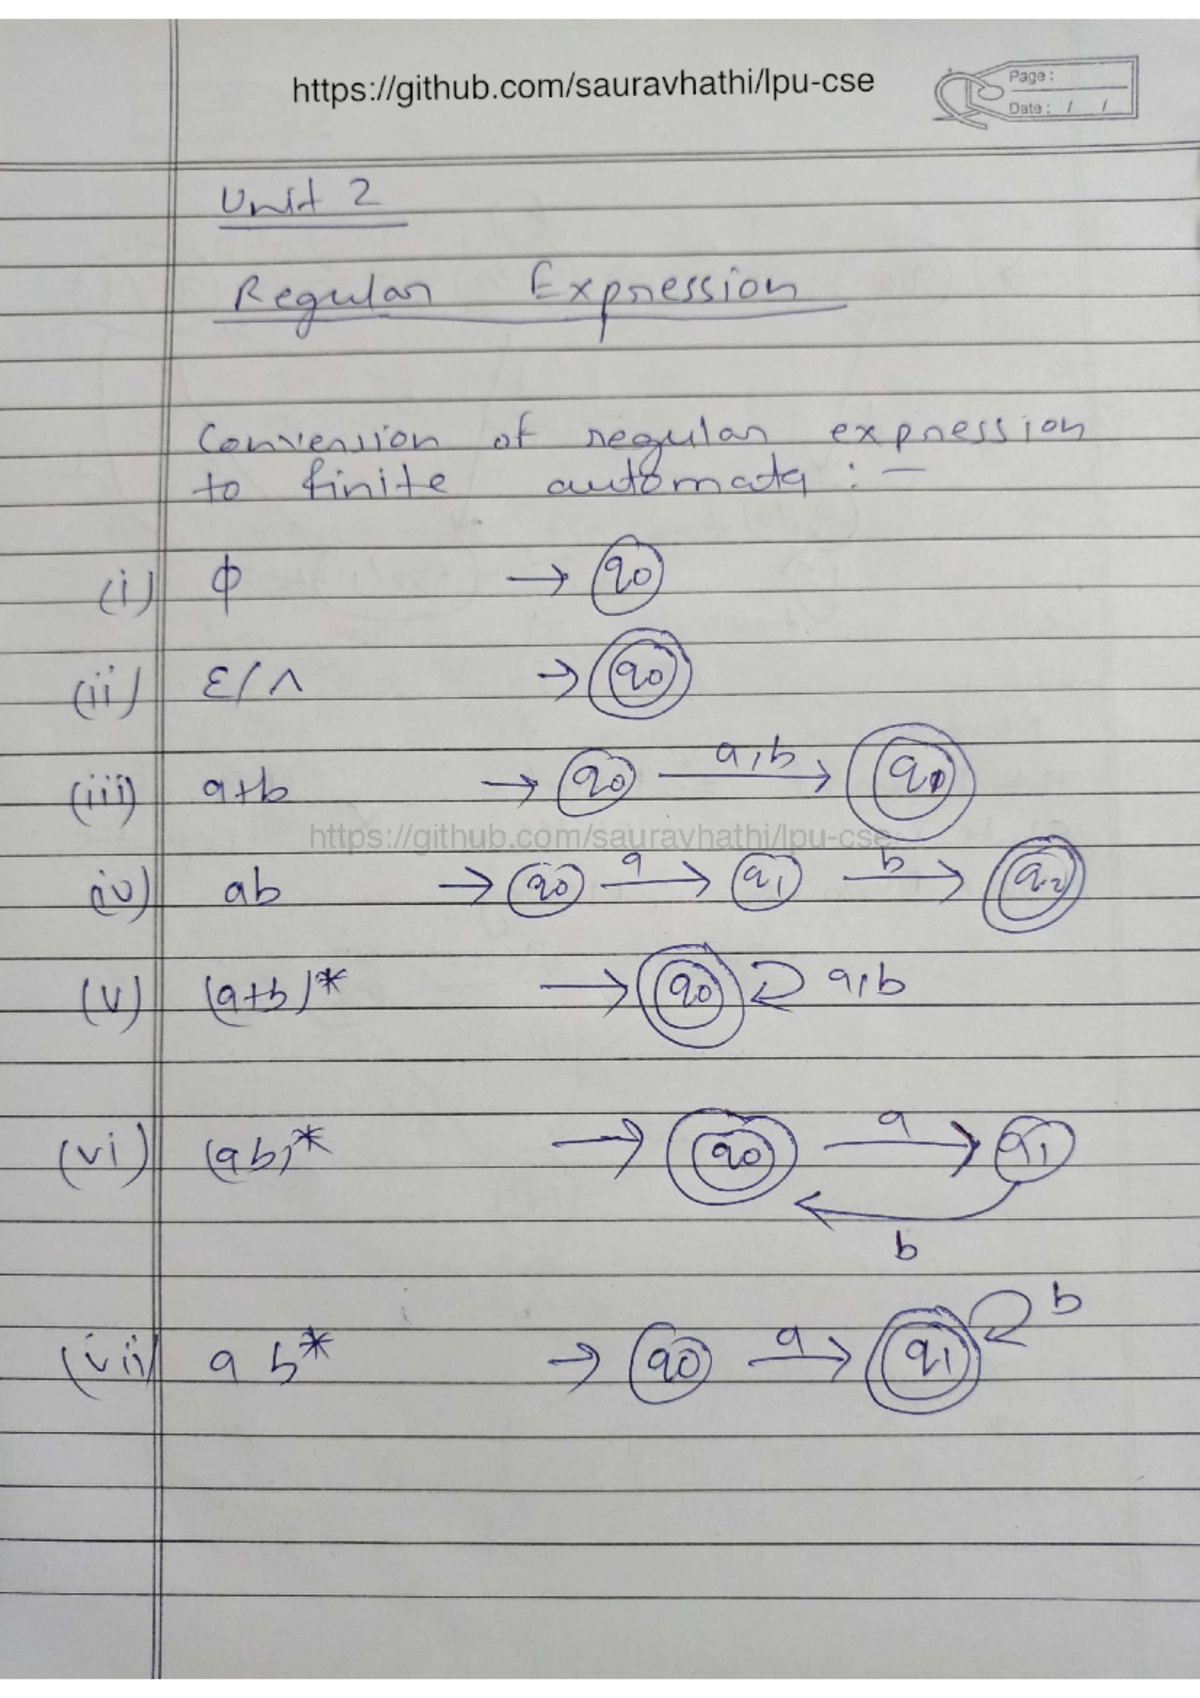 https://github.com/sauravhathi/lpu-cse
Page :
Date : / /
Unit 2
Regular Expression
Conversion of regular expression
to finite automata : —
(i) ϕ → q0
(ii) ε/∧ → q0
(iii) a+b → q0 a,b → q1
https://github.com/sauravhathi/lpu-cse
(iv) ab → q0 a → q1 b → q2
(v) (a+b)* → q0 a,b
(vi) (ab)* → q0 a → q1
b
(vii) a b* → q0 a → q1 b